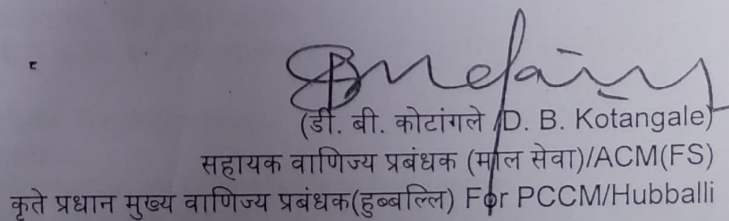 (डी. बी. कोटांगले /D. B. Kotangale)
सहायक वाणिज्य प्रबंधक (माल सेवा)/ACM(FS)
कृते प्रधान मुख्य वाणिज्य प्रबंधक(हुब्बल्लि) For PCCM/Hubballi